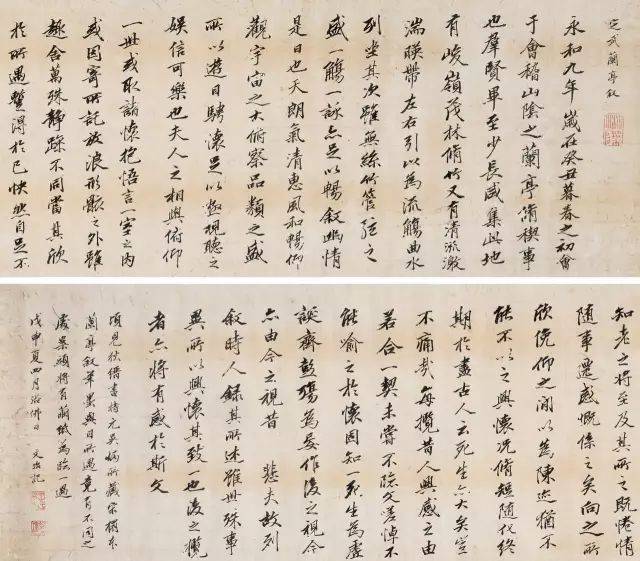 定武蘭亭敘
永和九年歲在癸丑暮春之初會
于會稽山陰之蘭亭脩稧事
也羣賢畢至少長咸集此地
有峻嶺茂林脩竹又有清流激
湍暎帶左右引以為流觴曲水
列坐其次雖無絲竹管弦之
盛一觴一詠亦足以暢敘幽情
是日也天朗氣清惠風和暢仰
觀宇宙之大俯察品類之盛
所以遊目騁懷足以極視聽之
娛信可樂也夫人之相與俯仰
一世或取諸懷抱悟言一室之內
或因寄所託放浪形骸之外雖
趣舍萬殊靜躁不同當其欣
於所遇蹔得於己快然自足不
知老之將至及其所之既惓情
隨事遷感慨係之矣向之所
欣俛仰之間以為陳迹猶不
能不以之興懷況脩短隨化終
期於盡古人云死生亦大矣豈
不痛哉每攬昔人興感之由
若合一契未嘗不臨文嗟悼不
能喻之於懷固知一死生為虛
誕齊彭殤為妄作後之視今
亦由今之視昔 悲夫故列
敘時人錄其所述雖世殊事
異所以興懷其致一也後之攬
者亦將有感於斯文
頃見 書持元吳炳所藏宋搨本
蘭亭敘筆墨與日所遇竟有不同之
處 為臨一過
戊申夏四月浴佛日 文治記